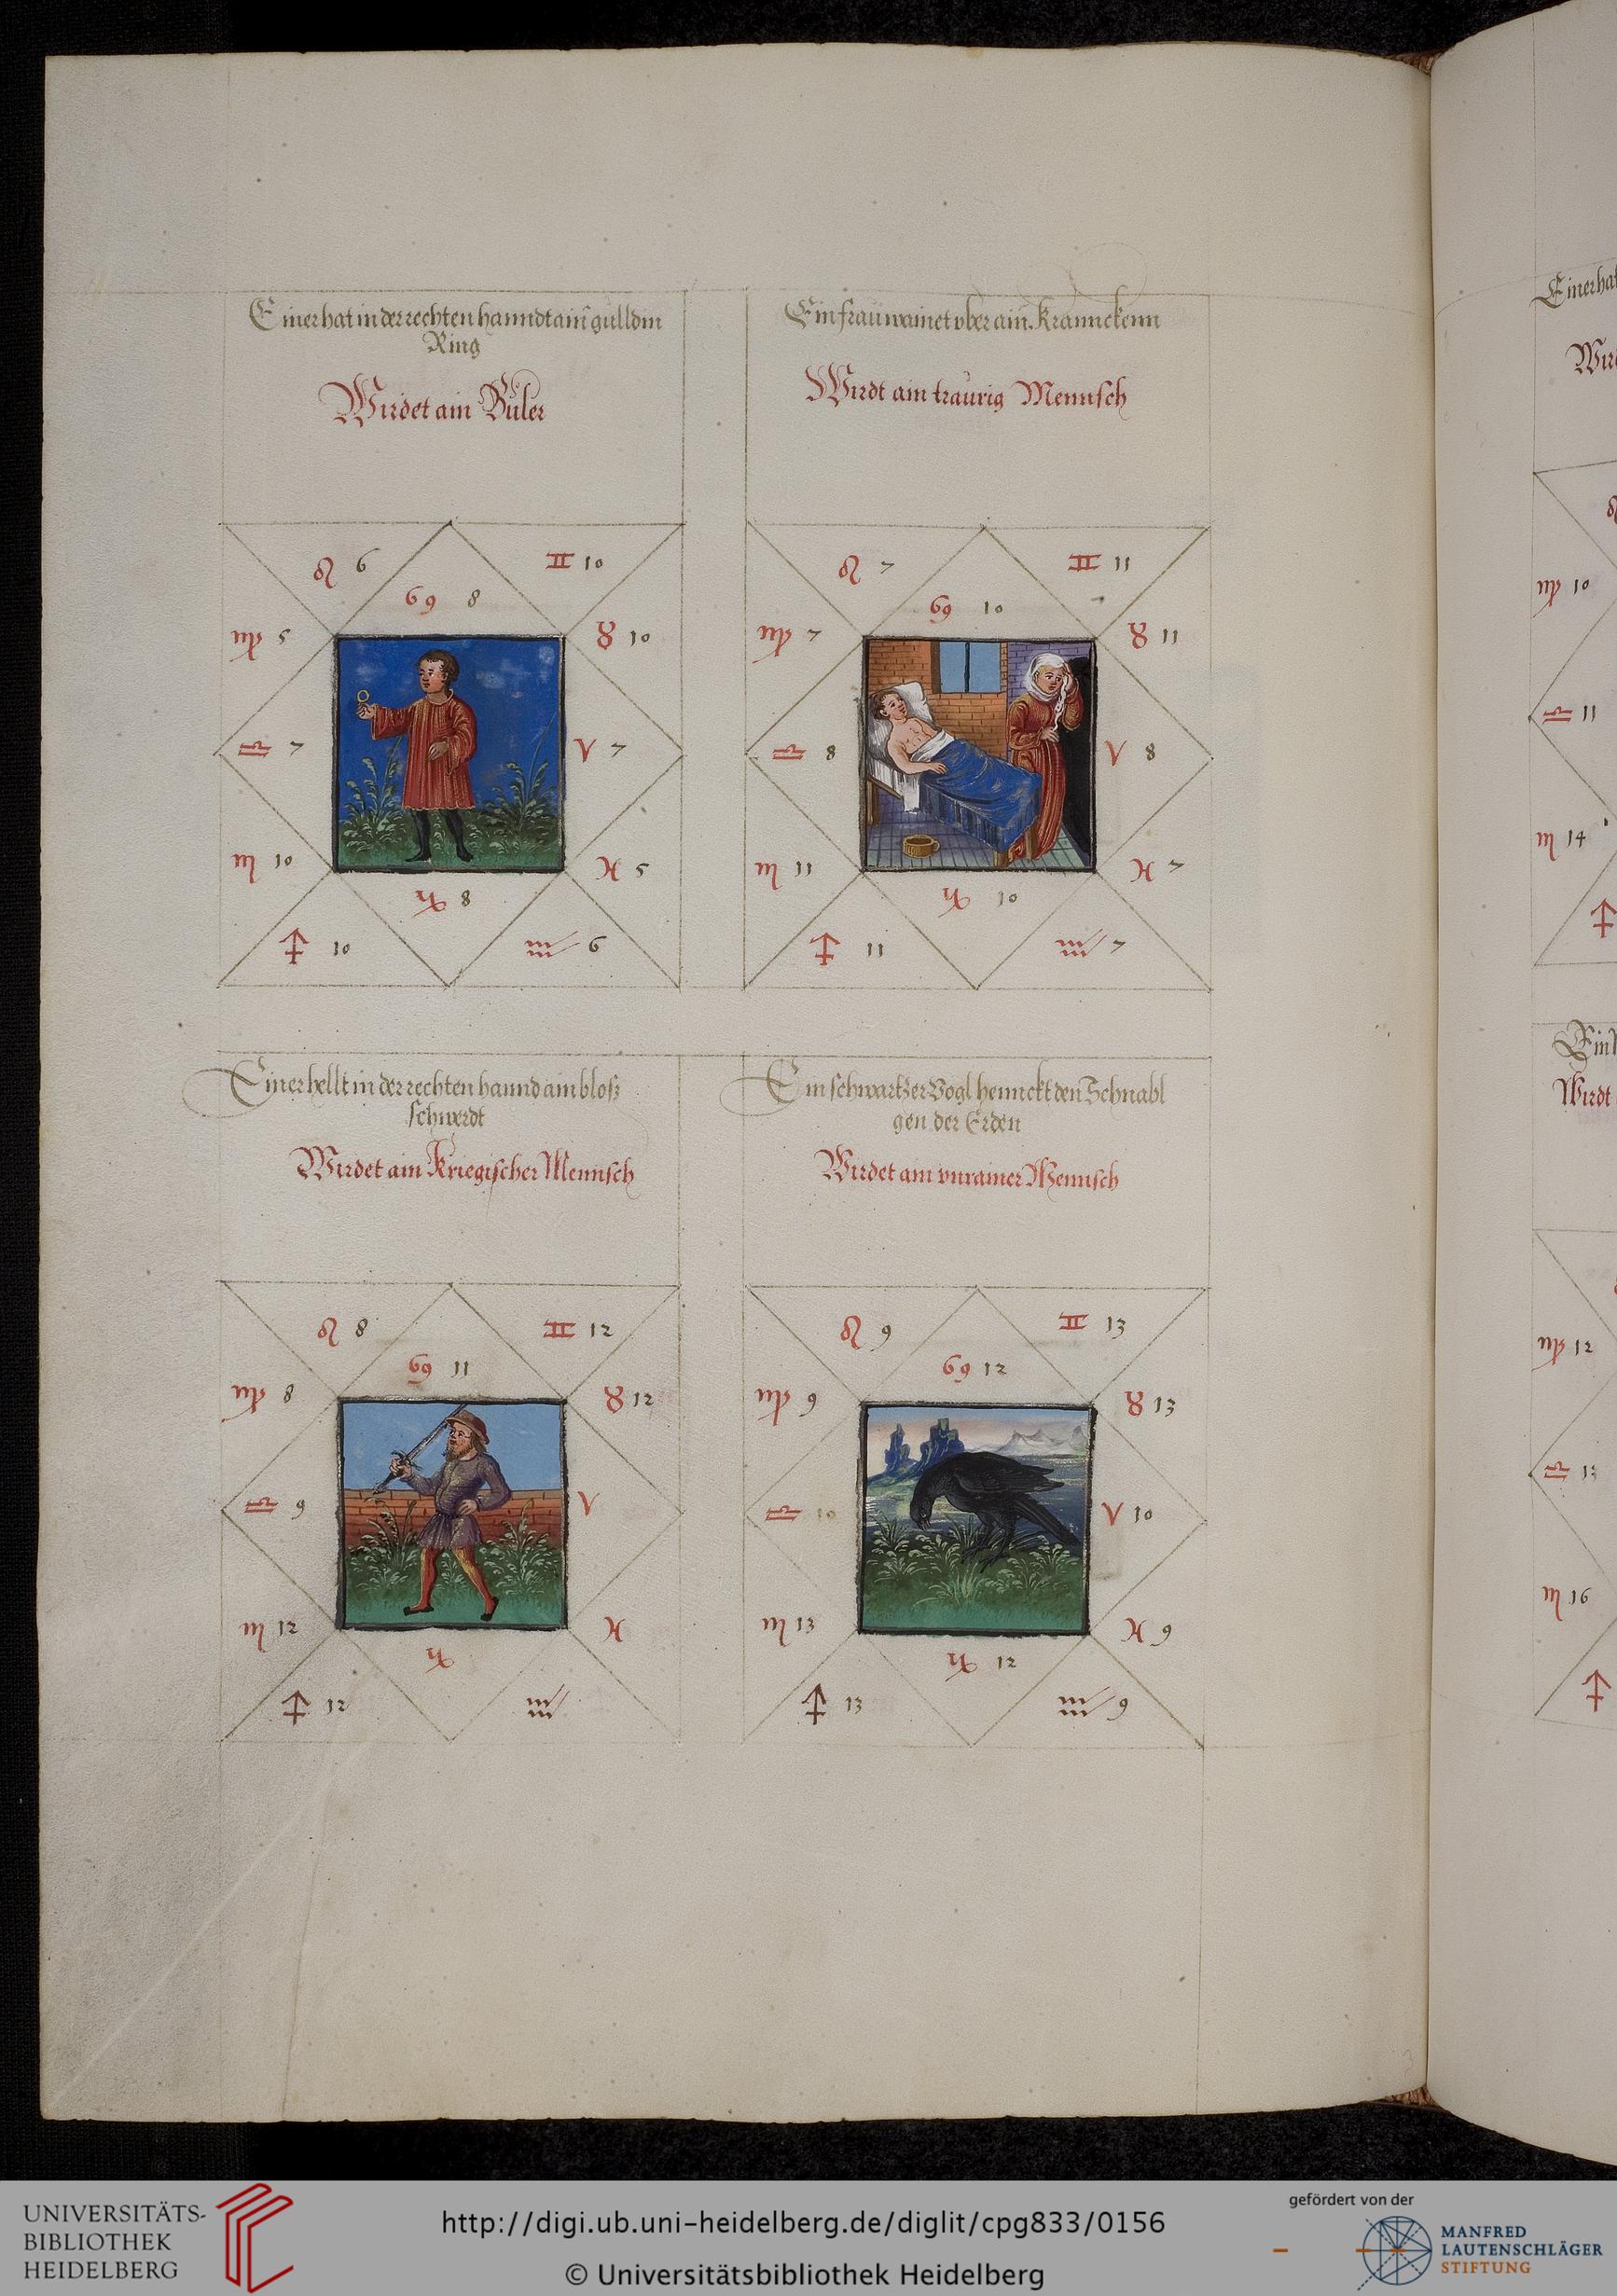 Einer hat in der rechten hanndt ain gulldin
Ring
Wirdet ain Buler
♌ 6
♊ 10
♋ 8
♍ 5
♉ 10
♎ 7
♈ 7
♏ 10
♓ 5
♑ 8
♐ 10
♒ 6
Ein frau wainet vber ain Krannckenn
Wirdt ain traurig Mennsch
♌ 7
♊ 11
♋ 10
♍ 7
♉ 11
♎ 8
♈ 8
♏ 11
♓ 7
♑ 10
♐ 11
♒ 7
Einer hellt in der rechten hannd ain bloß
schwerdt
Wirdet ain Kriegischer Mennsch
♌ 8
♊ 12
♋ 11
♍ 8
♉ 12
♎ 9
♈
♏ 12
♓
♑
♐ 12
♒
Ein schwartzer Vogl hennckt den Schnabl
gen der Erden
Wirdet ain vnrainer Mennsch
♌ 9
♊ 13
♋ 12
♍ 9
♉ 13
♎ 10
♈ 10
♏ 13
♓ 9
♑ 12
♐ 13
♒ 9
Einer hat
♍ 10
♎ 11
♏ 14
♐
Wirdt
♍ 12
♎ 13
♏ 16
♐
UNIVERSITÄTS-
BIBLIOTHEK
HEIDELBERG
http://digi.ub.uni-heidelberg.de/diglit/cpg833/0156
© Universitätsbibliothek Heidelberg
gefördert von der
MANFRED
LAUTENSCHLÄGER
STIFTUNG